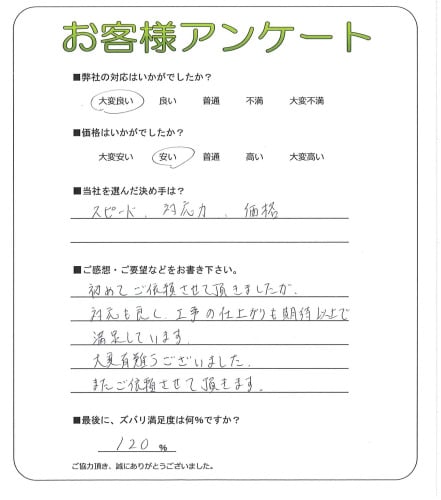 お客様アンケート
■弊社の対応はいかがでしたか？
大変良い 良い 普通 不満 大変不満
■価格はいかがでしたか？
大変安い 安い 普通 高い 大変高い
■当社を選んだ決め手は？
スピード、対応力、価格
■ご感想・ご要望などをお書き下さい。
初めてご依頼させて頂きましたが、
対応も良く、工事の仕上がりも期待以上で
満足しています。
大変有難うございました。
またご依頼させて頂きます。
■最後に、ズバリ満足度は何％ですか？
120 ％
ご協力頂き、誠にありがとうございました。